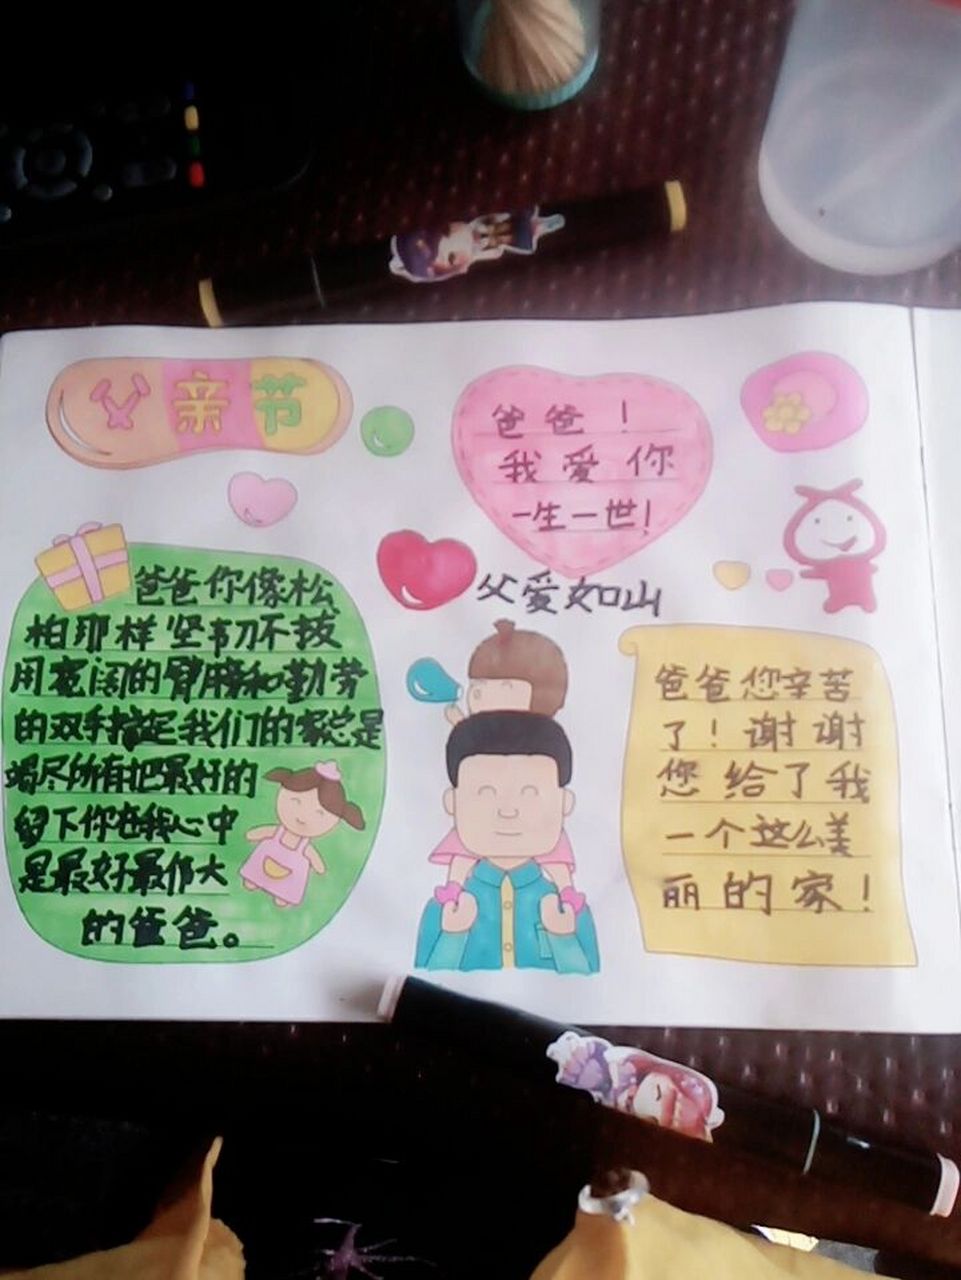 父亲节
爸爸！
我爱你
一生一世！
父爱如山
爸爸你像松
柏那样坚韧不拔
用宽阔的臂膀和勤劳
的双手搞定我们的家总是
竭尽所有把最好的
留下你在我心中
是最好最伟大
的爸爸。
爸爸您辛苦
了！谢谢
您给了我
一个这么美
丽的家！